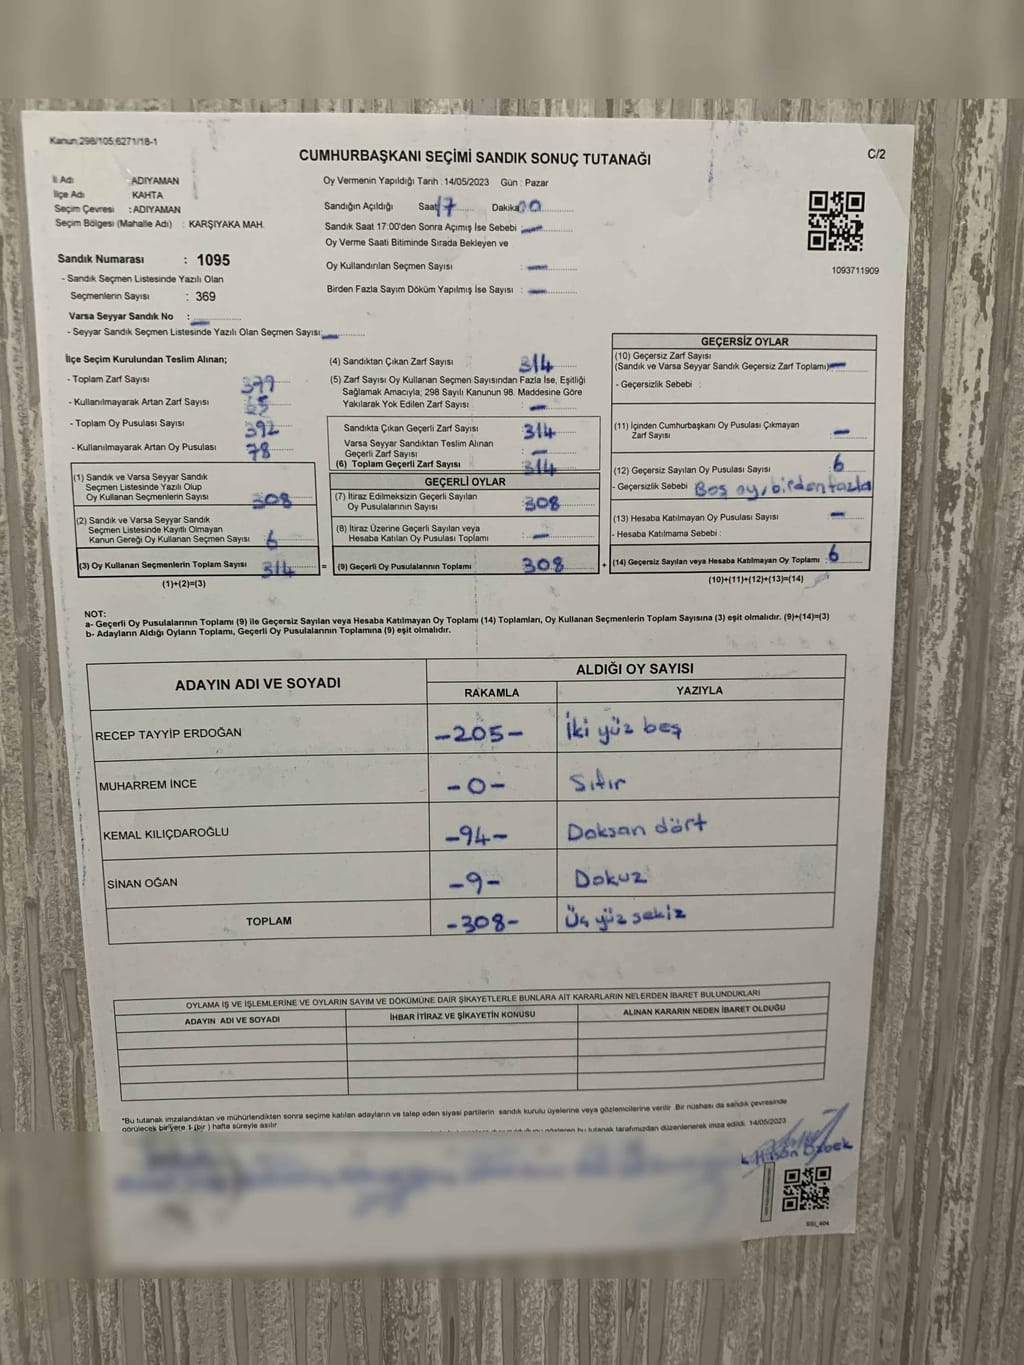 Kanun 298/105,6271/18-1
CUMHURBAŞKANI SEÇİMİ SANDIK SONUÇ TUTANAĞI
C/2
İl Adı : ADIYAMAN
İlçe Adı : KAHTA
Seçim Çevresi : ADIYAMAN
Seçim Bölgesi (Mahalle Adı) : KARŞIYAKA MAH.
Sandık Numarası : 1095
- Sandık Seçmen Listesinde Yazılı Olan
Seçmenlerin Sayısı : 369
Varsa Seyyar Sandık No : —
- Seyyar Sandık Seçmen Listesinde Yazılı Olan Seçmen Sayısı: —
Oy Vermenin Yapıldığı Tarih : 14/05/2023 Gün : Pazar
Sandığın Açıldığı Saat 17 Dakika 00
Sandık Saat 17:00'den Sonra Açımış İse Sebebi : —
Oy Verme Saati Bitiminde Sırada Bekleyen ve
Oy Kullandırılan Seçmen Sayısı : —
Birden Fazla Sayım Döküm Yapılmış İse Sayısı : —
1093711909
İlçe Seçim Kurulundan Teslim Alınan;
- Toplam Zarf Sayısı 379
- Kullanılmayarak Artan Zarf Sayısı
- Toplam Oy Pusulası Sayısı 392
- Kullanılmayarak Artan Oy Pusulası 78
(1) Sandık ve Varsa Seyyar Sandık
Seçmen Listesinde Yazılı Olup
Oy Kullanan Seçmenlerin Sayısı 308
(2) Sandık ve Varsa Seyyar Sandık
Seçmen Listesinde Kayıtlı Olmayan
Kanun Gereği Oy Kullanan Seçmen Sayısı 6
(3) Oy Kullanan Seçmenlerin Toplam Sayısı 314 =
(1)+(2)=(3)
(4) Sandıktan Çıkan Zarf Sayısı 314
(5) Zarf Sayısı Oy Kullanan Seçmen Sayısından Fazla İse, Eşitliği
Sağlamak Amacıyla; 298 Sayılı Kanunun 98. Maddesine Göre
Yakılarak Yok Edilen Zarf Sayısı : —
Sandıkta Çıkan Geçerli Zarf Sayısı : 314
Varsa Seyyar Sandıktan Teslim Alınan
Geçerli Zarf Sayısı : —
(6) Toplam Geçerli Zarf Sayısı : 314
GEÇERLİ OYLAR
(7) İtiraz Edilmeksizin Geçerli Sayılan
Oy Pusulalarının Sayısı : 308
(8) İtiraz Üzerine Geçerli Sayılan veya
Hesaba Katılan Oy Pusulası Toplamı : —
(9) Geçerli Oy Pusulalarının Toplamı : 308 +
GEÇERSİZ OYLAR
(10) Geçersiz Zarf Sayısı
(Sandık ve Varsa Seyyar Sandık Geçersiz Zarf Toplamı) —
- Geçersizlik Sebebi :
(11) İçinden Cumhurbaşkanı Oy Pusulası Çıkmayan
Zarf Sayısı : —
(12) Geçersiz Sayılan Oy Pusulası Sayısı : 6
- Geçersizlik Sebebi : Boş oy, birden fazla
(13) Hesaba Katılmayan Oy Pusulası Sayısı : —
- Hesaba Katılmama Sebebi :
(14) Geçersiz Sayılan veya Hesaba Katılmayan Oy Toplamı : 6
(10)+(11)+(12)+(13)=(14)
NOT:
a- Geçerli Oy Pusulalarının Toplamı (9) ile Geçersiz Sayılan veya Hesaba Katılmayan Oy Toplamı (14) Toplamları, Oy Kullanan Seçmenlerin Toplam Sayısına (3) eşit olmalıdır. (9)+(14)=(3)
b- Adayların Aldığı Oyların Toplamı, Geçerli Oy Pusulalarının Toplamına (9) eşit olmalıdır.
ADAYIN ADI VE SOYADI ALDIĞI OY SAYISI
RAKAMLA YAZIYLA
RECEP TAYYİP ERDOĞAN -205- İki yüz beş
MUHARREM İNCE -0- Sıfır
KEMAL KILIÇDAROĞLU -94- Doksan dört
SİNAN OĞAN -9- Dokuz
TOPLAM -308- Üç yüz sekiz
OYLAMA İŞ VE İŞLEMLERİNE VE OYLARIN SAYIM VE DÖKÜMÜNE DAİR ŞİKAYETLERLE BUNLARA AİT KARARLARIN NELERDEN İBARET BULUNDUKLARI
ADAYIN ADI VE SOYADI İHBAR İTİRAZ VE ŞİKAYETİN KONUSU ALINAN KARARIN NEDEN İBARET OLDUĞU
*Bu tutanak imzalandıktan ve mühürlendikten sonra seçime katılan adayların ve talep eden siyasi partilerin sandık kurulu üyelerine veya gözlemcilerine verilir. Bir nüshası da sandık çevresinde
görülecek bir yere 1 (bir) hafta süreyle asılır. bu tutanak tarafımızdan düzenlenerek imza edildi. 14/05/2023
Hasan Özbek